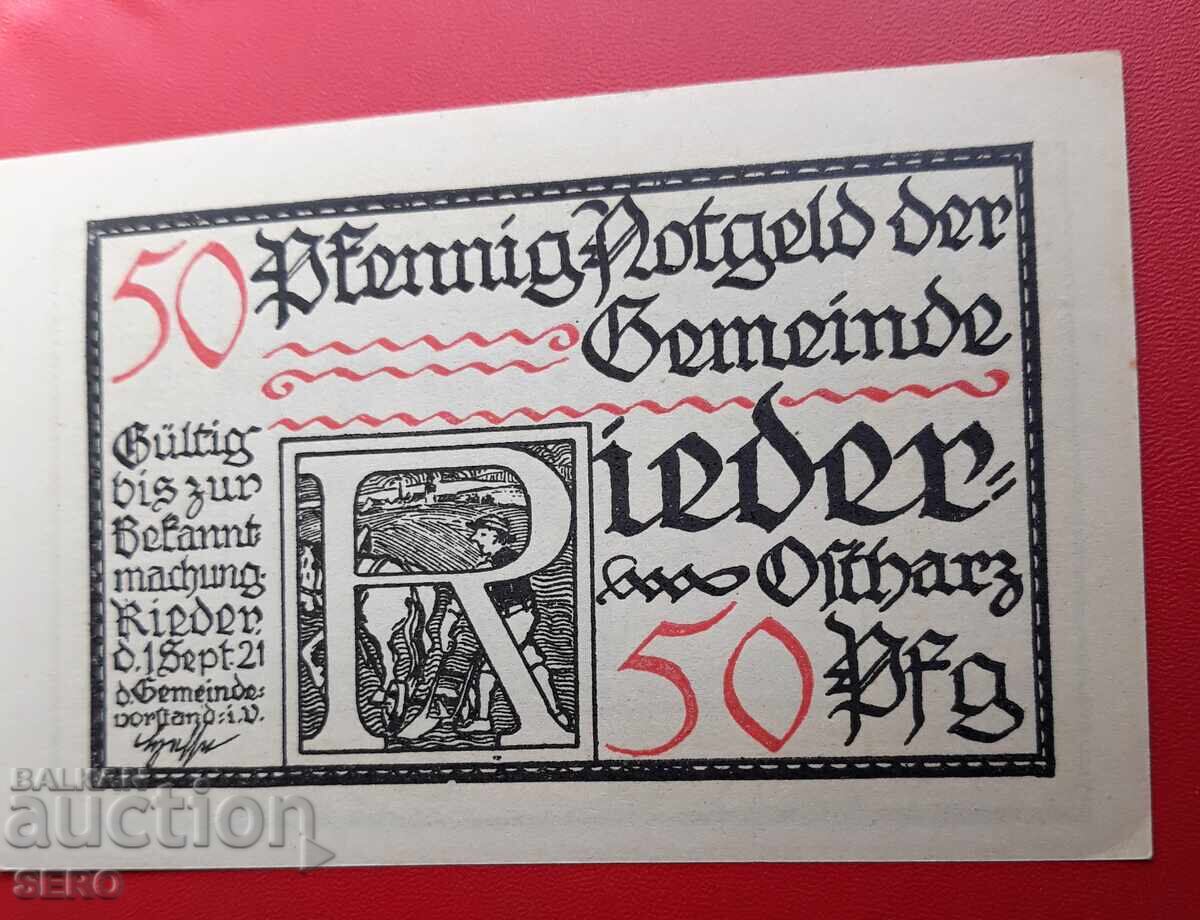 50 Pfennig Notgeld der
Gemeinde
Rieder-
Ostharz
50 Pfg
Gültig
bis zur
Bekannt-
machung.
Rieder,
d. 1 Sept. 21
d. Gemeinde-
vorstand: i. V.
BALKAN
auction
SERO